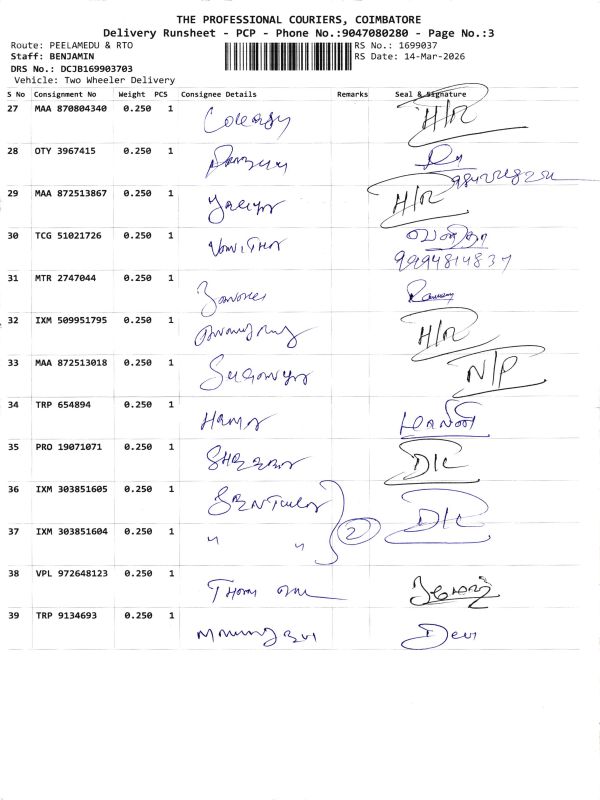 THE PROFESSIONAL COURIERS, COIMBATORE
Delivery Runsheet - PCP - Phone No.:9047080280 - Page No.:3
Route: PEELAMEDU & RTO RS No.: 1699037
Staff: BENJAMIN RS Date: 14-Mar-2026
DRS No.: DCJB169903703
Vehicle: Two Wheeler Delivery
S No Consignment No Weight PCS Consignee Details Remarks Seal & Signature
27 MAA 870804340 0.250 1 H/R
28 OTY 3967415 0.250 1
29 MAA 872513867 0.250 1 H/R
30 TCG 51021726 0.250 1
9994814837
31 MTR 2747044 0.250 1
32 IXM 509951795 0.250 1 H/R
33 MAA 872513018 0.250 1 N/P
34 TRP 654894 0.250 1
35 PRO 19071071 0.250 1 D/L
36 IXM 303851605 0.250 1 D/L
37 IXM 303851604 0.250 1 " " 2
38 VPL 972648123 0.250 1
39 TRP 9134693 0.250 1 Devi